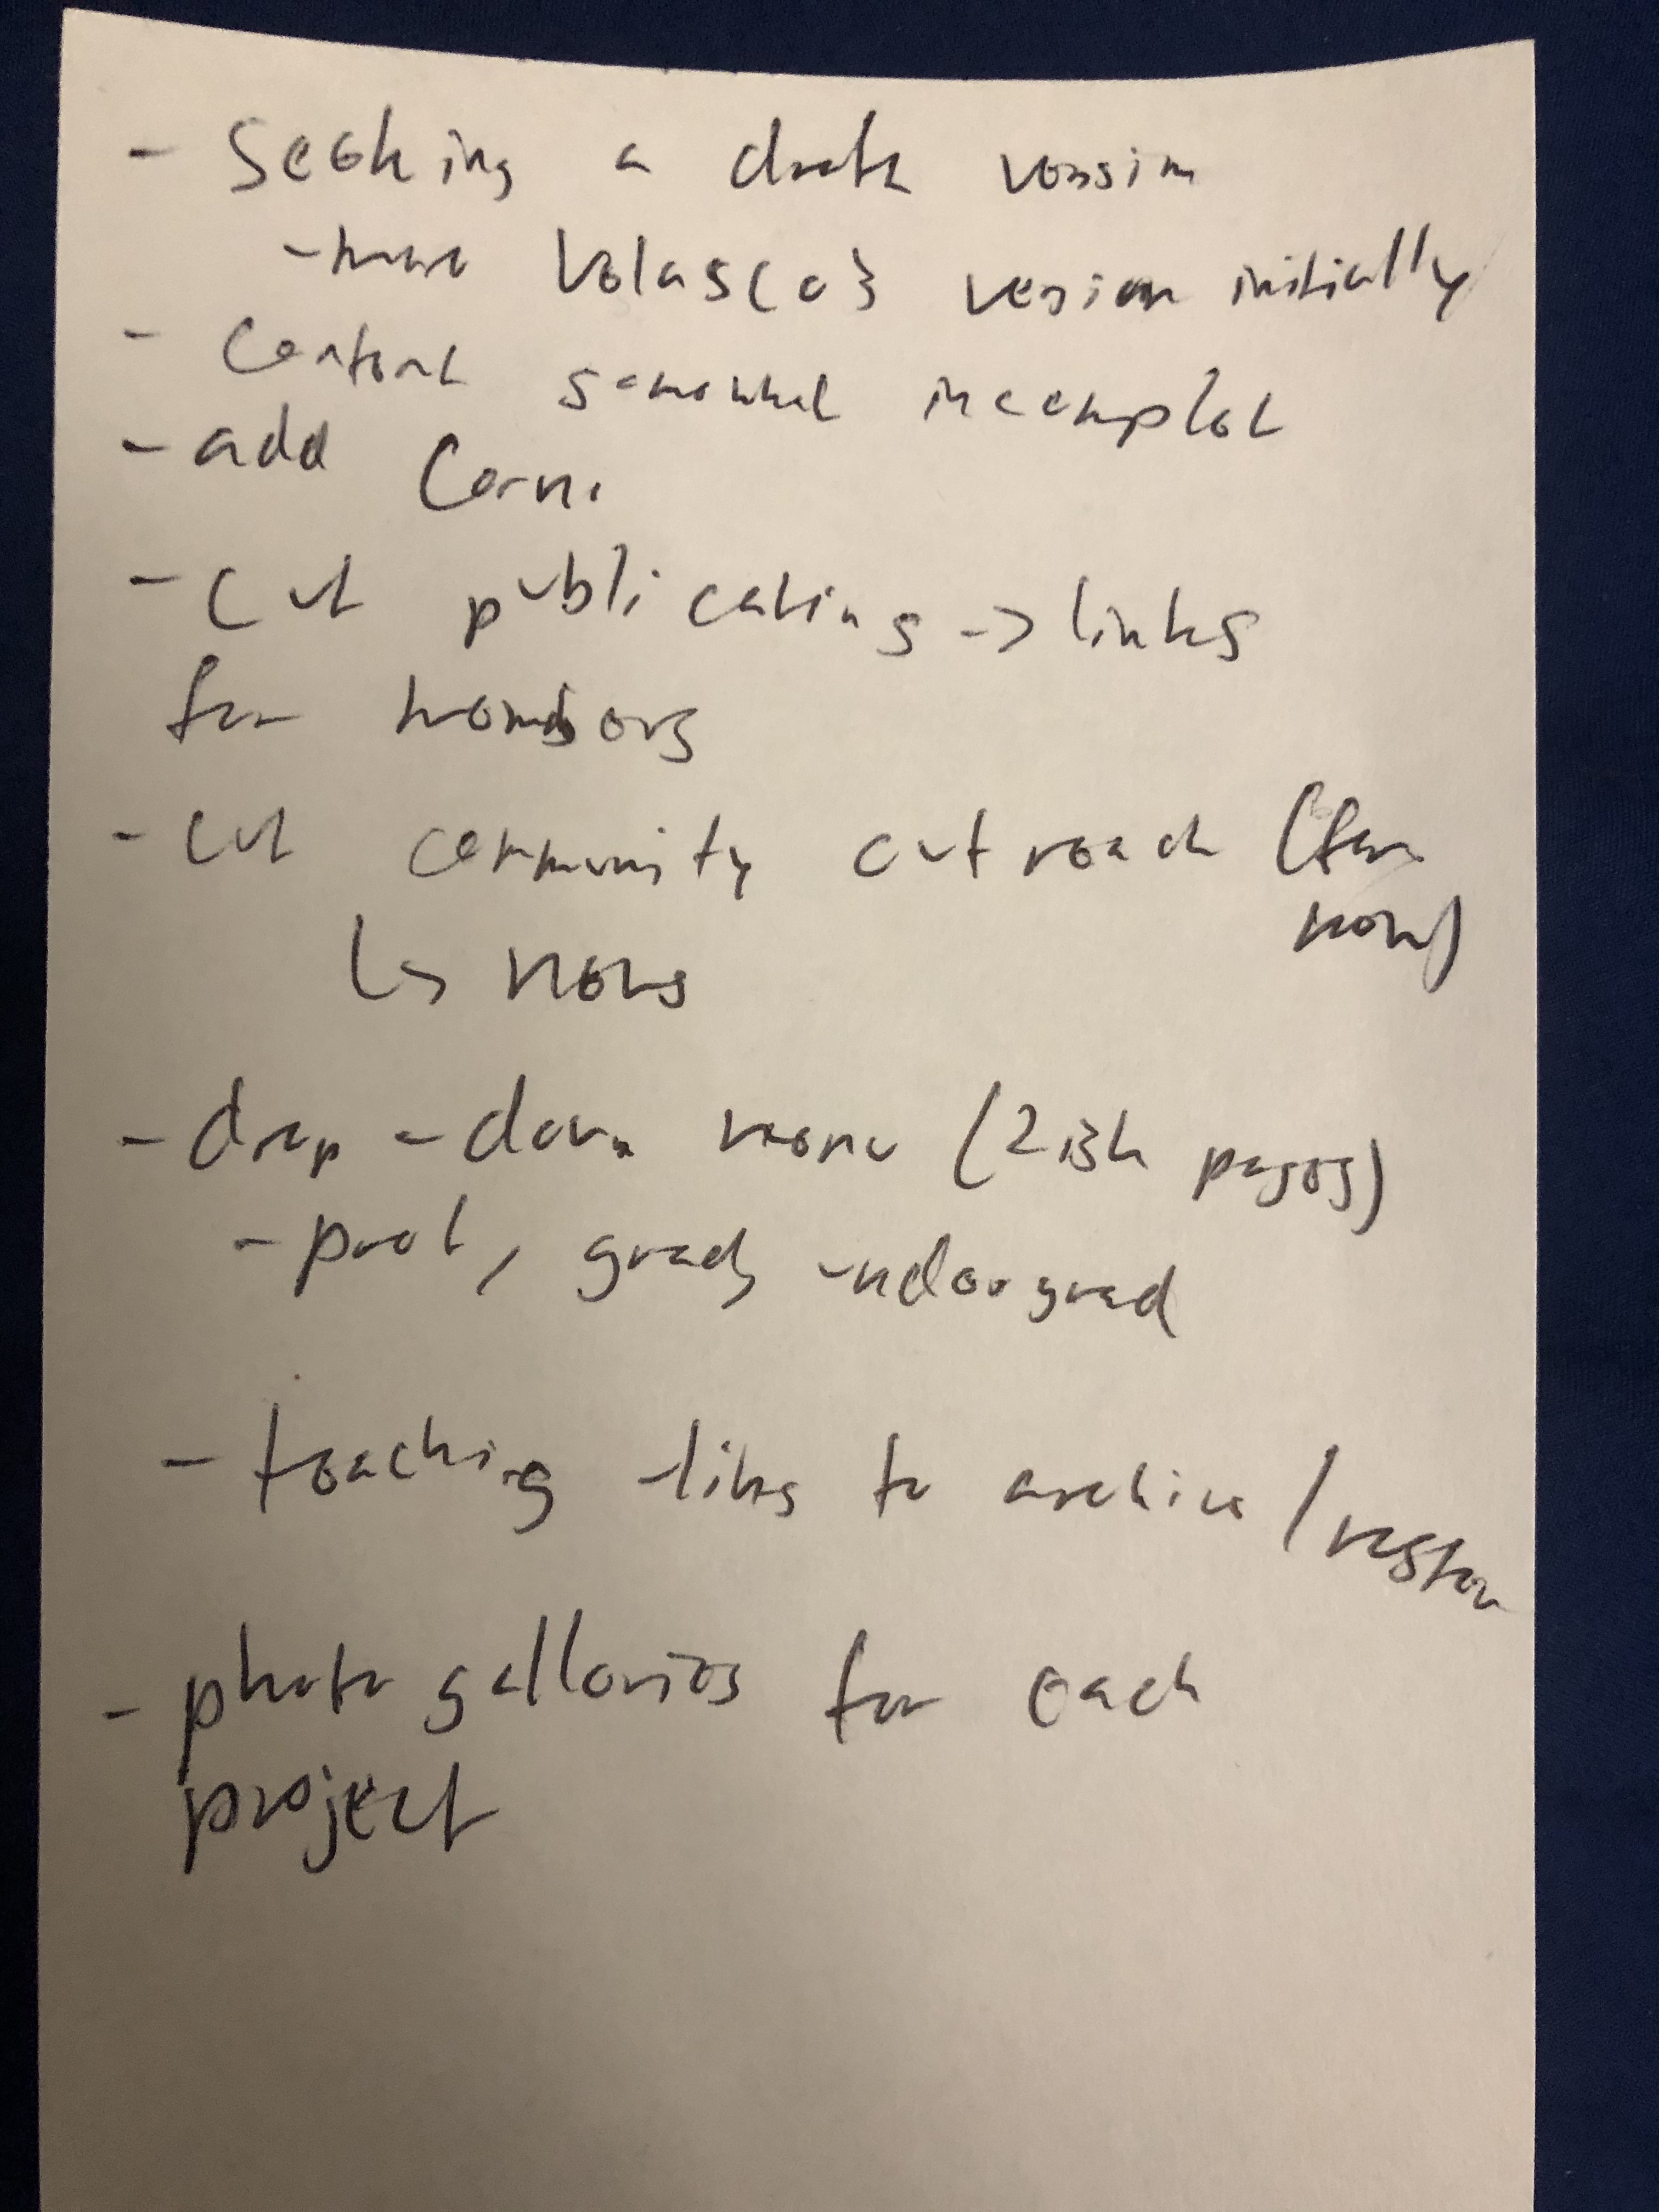 - Seeking a draft version
- have Velasco's version initially
- Content somewhat incomplet
- add
- cut publications -> links
for members
- cut community outreach (for
now)
↳ news
- drop-down menu (2ish pages)
- prof, grad, undergrad
- teaching - links to archive /
- photo galleries for each
project